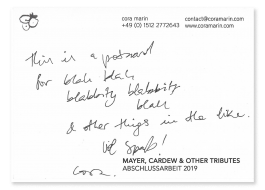 cora marin
+49 (0) 1512 2772643
contact@coramarin.com
www.coramarin.com
this is a postcard
for blah blah
blabbity blabbity
blah
& other things in the like.
Viel Spaß!
cora.
MAYER, CARDEW & OTHER TRIBUTES
ABSCHLUSSARBEIT 2019